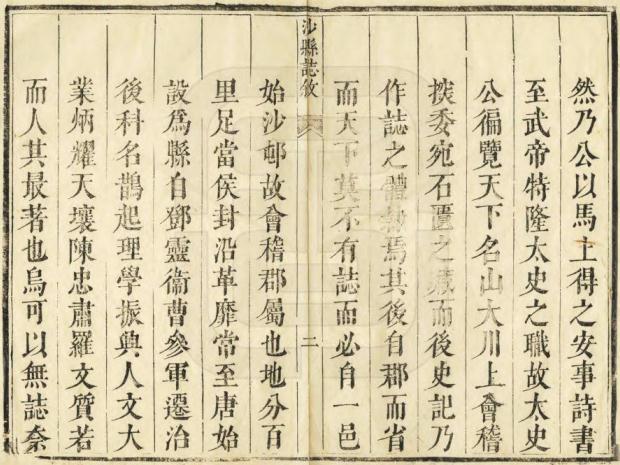 然乃公以馬上得之安事詩書
至武帝特隆太史之職故太史
公徧覽天下名山大川上會稽
探委宛石匱之藏而後史記乃
作誌之體昉焉其後自郡而省
而天下莫不有誌而必自一邑
沙縣誌敘
二
始沙邨故會稽郡屬也地分百
里足當侯封沿革靡常至唐始
設爲縣自鄧靈衞曹參軍遷治
後科名鵲起理學振興人文大
業炳耀天壤陳忠肅羅文質若
而人其最著也烏可以無誌奈